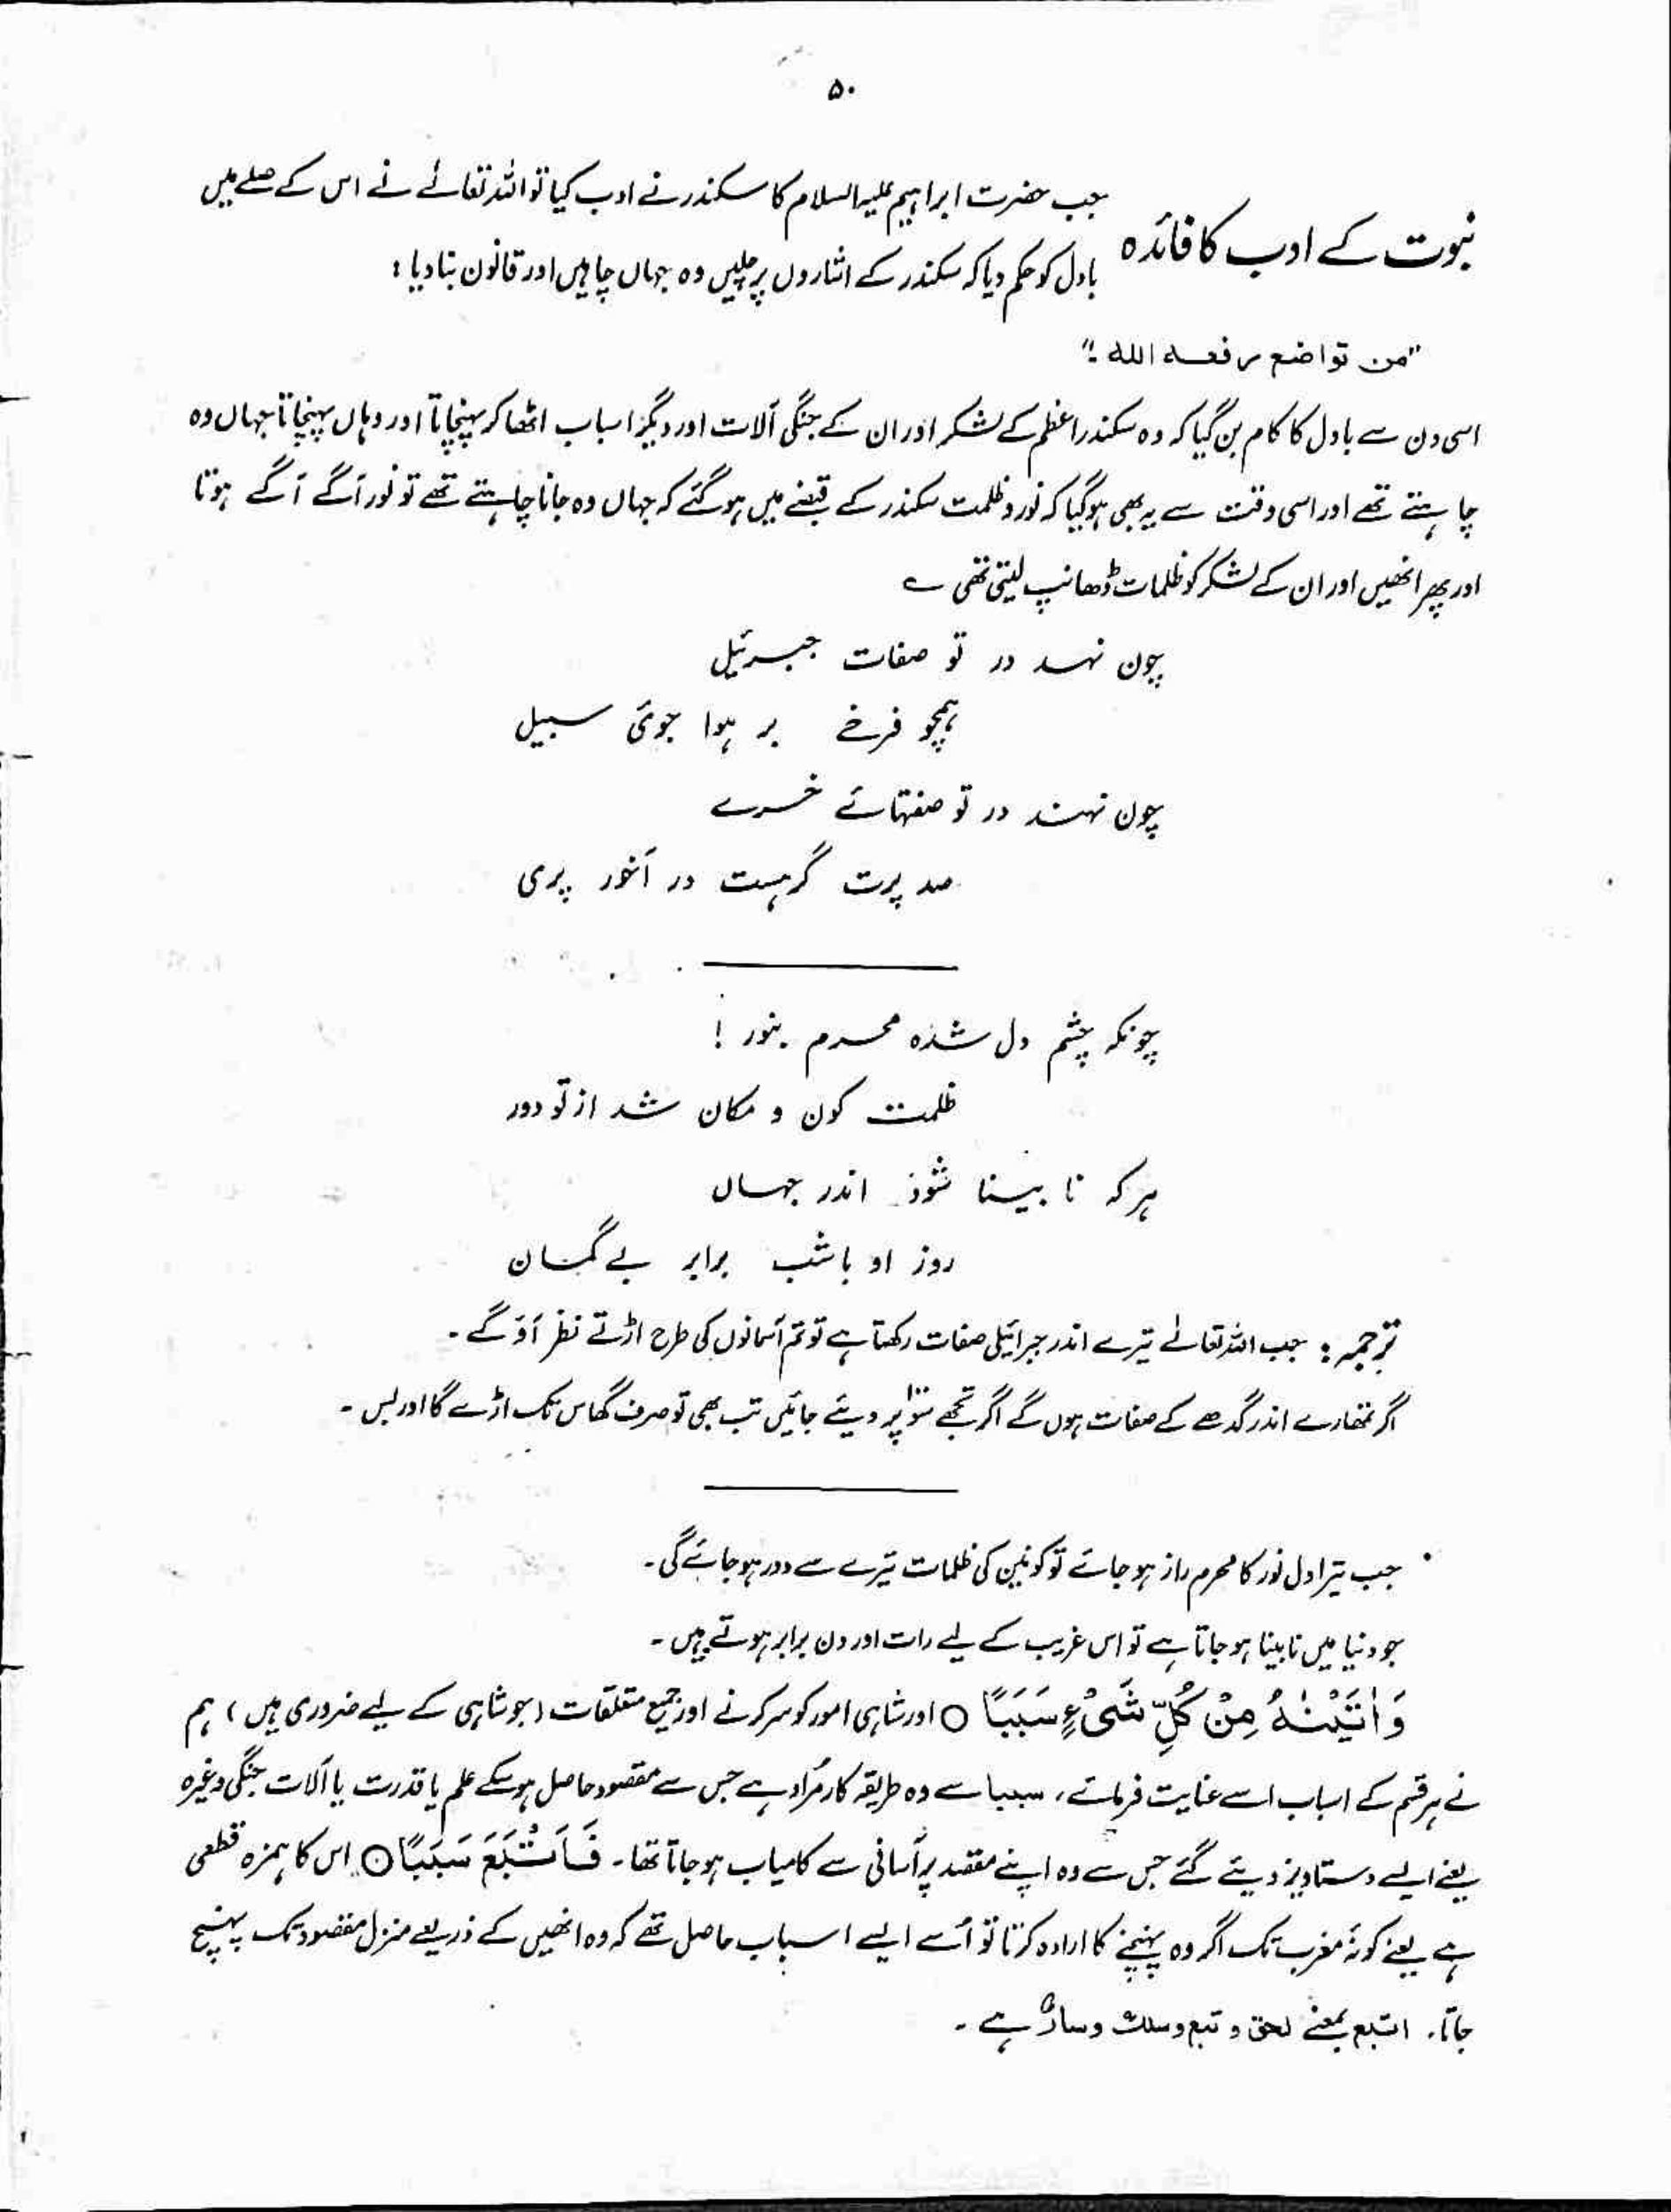 ۵۰
نبوت کے ادب کا فائدہ
جب حضرت ابراہیم علیہ السلام کا سکندر نے ادب کیا تو اللہ تعالےٰ نے اس کے صلے میں
بادل کو حکم دیا کہ سکندر کے اشاروں پر چلیں وہ جہاں چاہیں اور قانون بنا دیا :
"من تواضع رفعہ اللہ ۔"
اسی دن سے بادل کا کام بن گیا کہ وہ سکندر اعظم کے لشکر اور ان کے جنگی آلات اور دیگر اسباب اٹھا کر پہنچاتا اور وہاں پہنچاتا جہاں وہ
چاہتے تھے اور اسی وقت سے یہ بھی ہو گیا کہ نور و ظلمت سکندر کے قبضے میں ہو گئے کہ جہاں وہ جانا چاہتے تھے تو نور آگے آگے ہوتا
اور پھر انھیں اور ان کے لشکر کو ظلمات ڈھانپ لیتی تھی ؎
چون نہد در تو صفات جبرئیل
ہمچو فرخے بر ہوا جوئ سبیل
چون نہند در تو صفتہائے خرے
صد پرت گرہست در آخور پری
چونکہ چشم دل شدہ محرم بنور !
ظلمت کون و مکان شد از تو دور
ہر کہ نا بینا شود اندر جہاں
روز او با شب برابر بے گمان
ترجمہ : جب اللہ تعالےٰ تیرے اندر جبرائیلی صفات رکھتا ہے تو تم آسمانوں کی طرح اڑتے نظر آؤ گے ۔
اگر تمھارے اندر گدھے کے صفات ہوں گے اگر تجھے سو پر دیئے جائیں تب بھی تو صرف گھاس تک اڑے گا اور بس ۔
جب تیرا دل نور کا محرم راز ہو جائے تو کونین کی ظلمات تیرے سے دور ہو جائے گی ۔
جو دنیا میں نابینا ہو جاتا ہے تو اس غریب کے لیے رات اور دن برابر ہوتے ہیں ۔
وَ اٰتَیْنٰہُ مِنْ کُلِّ شَیْءٍ سَبَبًا ○ اور شاہی امور کو سر کرنے اور جمیع متعلقات (جو شاہی کے لیے ضروری ہیں) ہم
نے ہر قسم کے اسباب اسے عنایت فرمائے، سببا سے وہ طریقہ کار مراد ہے جس سے مقصود حاصل ہو سکے علم یا قدرت یا آلات جنگی وغیرہ
یعنے ایسے دستاویز دیئے گئے جس سے وہ اپنے مقصد پر آسانی سے کامیاب ہو جاتا تھا۔ فَاَتْبَعَ سَبَبًا ○ اس کا ہمزہ قطعی
ہے یعنے کونۂ مغرب تک اگر وہ پہنچنے کا ارادہ کرتا تو اُسے ایسے اسباب حاصل تھے کہ وہ انھیں کے ذریعے منزل مقصود تک پہنچ
جاتا۔ اتبع بمعنے لحق و تبع و سلک و سار ہے ۔